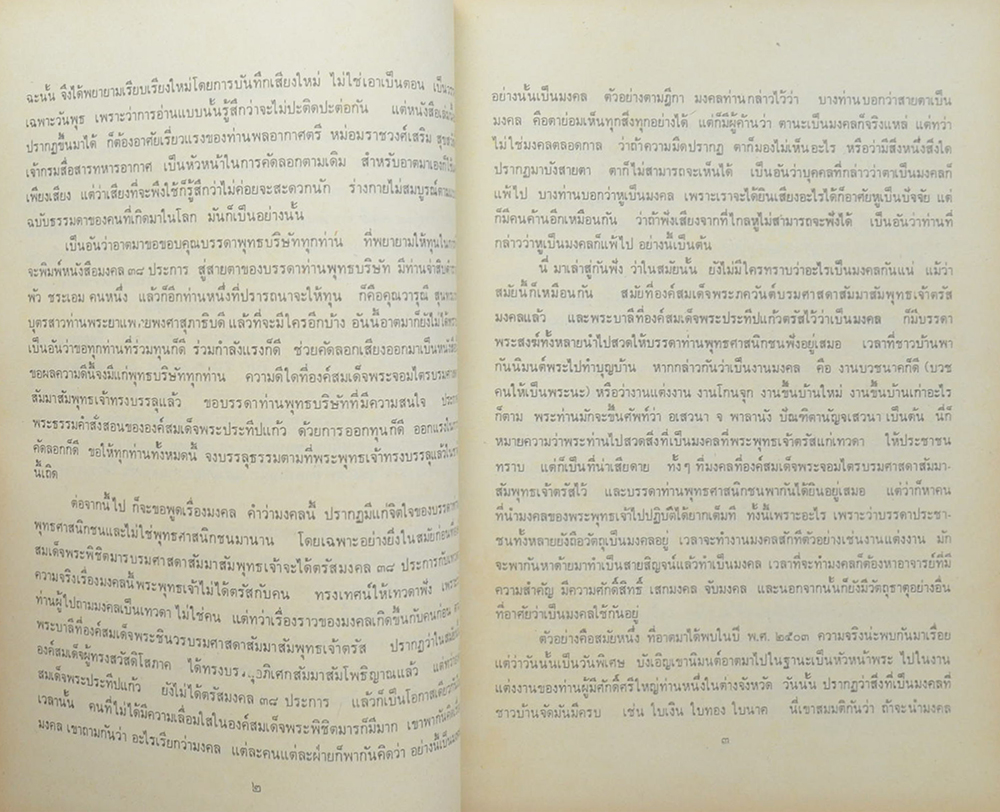 ฉะนั้น จึงได้พยายามเรียบเรียงใหม่โดยการบันทึกเสียงใหม่ ไม่ใช่เอาเป็นตอน
เฉพาะวันพุธ เพราะว่าการอ่านแบบนั้นรู้สึกว่าจะไม่ปะติดปะต่อกัน แต่หนังสือเล่มนี้
ปรากฏขึ้นมาได้ ก็ต้องอาศัยเรี่ยวแรงของท่านพลอากาศตรี หม่อมราชวงศ์เสริม
เจ้ากรมสื่อสารทหารอากาศ เป็นหัวหน้าในการคัดลอกตามเดิม สำหรับอาตมาเองก็ใช้
เพียงเสียง แต่ว่าเสียงที่จะพึงใช้ก็รู้สึกว่าไม่ค่อยจะสะดวกนัก ร่างกายไม่สมบูรณ์
ฉบับธรรมดาของคนที่เกิดมาในโลก มันก็เป็นอย่างนั้น
เป็นอันว่าอาตมาขอขอบคุณบรรดาพุทธบริษัททุกท่าน ที่พยายามให้ทุนใน
จะพิมพ์หนังสือมงคล ๓๘ ประการ สู่สายตาของบรรดาท่านพุทธบริษัท มีท่านจ่าสิบตำรวจ
พัว ชระเอม คนหนึ่ง แล้วก็อีกท่านหนึ่งที่ปรารถนาจะให้ทุน ก็คือคุณวารุณี
บุตรสาวท่านพระยาแพทยพงศาสุภาธิบดี แล้วที่จะมีใครอีกบ้าง อันนี้อาตมาก็ยังไม่ได้
เป็นอันว่าขอทุกท่านที่ร่วมทุนก็ดี ร่วมกำลังแรงก็ดี ช่วยคัดลอกเสียงออกมาเป็นหนังสือ
ขอผลความดีนี้จงมีแก่พุทธบริษัททุกท่าน ความดีใดที่องค์สมเด็จพระจอมไตรบรมศาสดา
สัมมาสัมพุทธเจ้าทรงบรรลุแล้ว ขอบรรดาท่านพุทธบริษัทที่มีความสนใจ
พระธรรมคำสั่งสอนขององค์สมเด็จพระประทีปแก้ว ด้วยการออกทุนก็ดี ออกแรงใน
คัดลอกก็ดี ขอให้ทุกท่านทั้งหมดนี้ จงบรรลุธรรมตามที่พระพุทธเจ้าทรงบรรลุแล้วใน
นี้เถิด
ต่อจากนี้ไป ก็จะขอพูดเรื่องมงคล คำว่ามงคลนี้ ปรากฏมีแก่จิตใจของบรรดา
พุทธศาสนิกชนและไม่ใช่พุทธศาสนิกชนมานาน โดยเฉพาะอย่างยิ่งในสมัยก่อนที่
สมเด็จพระพิชิตมารบรมศาสดาสัมมาสัมพุทธเจ้าจะได้ตรัสมงคล ๓๘ ประการกับ
ความจริงเรื่องมงคลนี้พระพุทธเจ้าไม่ได้ตรัสกับคน ทรงเทศน์ให้เทวดาฟัง
ท่านผู้ไปถามมงคลเป็นเทวดา ไม่ใช่คน แต่ทว่าเรื่องราวของมงคลเกิดขึ้นกับคนก่อน
พระบาลีที่องค์สมเด็จพระชินวรบรมศาสดาสัมมาสัมพุทธเจ้าตรัส ปรากฏว่าในสมัย
องค์สมเด็จผู้ทรงสวัสดิโสภาค ได้ทรงบรรลุอภิเศกสัมมาสัมโพธิญาณแล้ว
สมเด็จพระประทีปแก้ว ยังไม่ได้ตรัสมงคล ๓๘ ประการ แล้วก็เป็นโอกาสเดียวกัน
เวลานั้น คนที่ไม่ได้มีความเลื่อมใสในองค์สมเด็จพระพิชิตมารก็มีมาก เขาพากันคิด
มงคล เขาถามกันว่า อะไรเรียกว่ามงคล แต่ละคนแต่ละฝ่ายก็พากันคิดว่า อย่างนี้เป็น
๒
อย่างนั้นเป็นมงคล ตัวอย่างตามฎีกา มงคลท่านกล่าวไว้ว่า บางท่านบอกว่าสายตาเป็น
มงคล คือตาย่อมเห็นทุกสิ่งทุกอย่างได้ แต่ก็มีผู้ค้านว่า ตานะเป็นมงคลก็จริงแหล่ แต่ทว่า
ไม่ใช่มงคลตลอดกาล ว่าถ้าความมืดปรากฏ ตาก็มองไม่เห็นอะไร หรือว่ามีสิ่งหนึ่งสิ่งใด
ปรากฏมาบังสายตา ตาก็ไม่สามารถจะเห็นได้ เป็นอันว่าบุคคลที่กล่าวว่าตาเป็นมงคลก็
แพ้ไป บางท่านบอกว่าหูเป็นมงคล เพราะเราจะได้ยินเสียงอะไรได้ก็อาศัยหูเป็นปัจจัย แต่
ก็มีคนค้านอีกเหมือนกัน ว่าถ้าฟังเสียงจากที่ไกลหูไม่สามารถจะฟังได้ เป็นอันว่าท่านที่
กล่าวว่าหูเป็นมงคลก็แพ้ไป อย่างนี้เป็นต้น
นี่ มาเล่าสู่กันฟัง ว่าในสมัยนั้น ยังไม่มีใครทราบว่าอะไรเป็นมงคลกันแน่ แม้ว่า
สมัยนี้ก็เหมือนกัน สมัยที่องค์สมเด็จพระภควันต์บรมศาสดาสัมมาสัมพุทธเจ้าตรัส
มงคลแล้ว และพระบาลีที่องค์สมเด็จพระประทีปแก้วตรัสไว้ว่าเป็นมงคล ก็มีบรรดา
พระสงฆ์ทั้งหลายนำไปสวดให้บรรดาท่านพุทธศาสนิกชนฟังอยู่เสมอ เวลาที่ชาวบ้านพา
กันนิมนต์พระไปทำบุญบ้าน หากกล่าวกันว่าเป็นงานมงคล คือ งานบวชนาคก็ดี (บวช
คนให้เป็นพระนะ) หรือว่างานแต่งงาน งานโกนจุก งานขึ้นบ้านใหม่ งานขึ้นบ้านเก่าอะไร
ก็ตาม พระท่านมักจะขึ้นศัพท์ว่า อเสวนา จ พาลานัง บัณฑิตานัญจเสวนา เป็นต้น นี่ก็
หมายความว่าพระท่านไปสวดสิ่งที่เป็นมงคลที่พระพุทธเจ้าตรัสแก่เทวดา ให้ประชาชน
ทราบ แต่ก็เป็นที่น่าเสียดาย ทั้งๆ ที่มงคลที่องค์สมเด็จพระจอมไตรบรมศาสดาสัมมา-
สัมพุทธเจ้าตรัสไว้ และบรรดาท่านพุทธศาสนิกชนพากันได้ยินอยู่เสมอ แต่ว่าก็หาคน
ที่นำมงคลของพระพุทธเจ้าไปปฏิบัติได้ยากเต็มที ทั้งนี้เพราะอะไร เพราะว่าบรรดาประชา-
ชนทั้งหลายยังถือวัตถุเป็นมงคลอยู่ เวลาจะทำงานมงคลสักทีตัวอย่างเช่นงานแต่งงาน มัก
จะพากันหาด้ายมาทำเป็นสายสิญจน์แล้วทำเป็นมงคล เวลาที่จะทำมงคลก็ต้องหาอาจารย์ที่มี
ความสำคัญ มีความศักดิ์สิทธิ์ เสกมงคล จับมงคล และนอกจากนั้นก็ยังมีวัตถุธาตุอย่างอื่น
ที่อาศัยว่าเป็นมงคลใช้กันอยู่
ตัวอย่างคือสมัยหนึ่ง ที่อาตมาได้พบในปี พ.ศ. ๒๕๐๓ ความจริงน่ะพบกันมาเรื่อย
แต่ว่าวันนั้นเป็นวันพิเศษ บังเอิญเขานิมนต์อาตมาไปในฐานะเป็นหัวหน้าพระ ไปในงาน
แต่งงานของท่านผู้มีศักดิ์ศรีใหญ่ท่านหนึ่งในต่างจังหวัด วันนั้น ปรากฏว่าสิ่งที่เป็นมงคลที่
ชาวบ้านจัดมันมีครบ เช่น ใบเงิน ใบทอง ใบนาค นี่เขาสมมติกันว่า ถ้าจะนำมงคล
๓